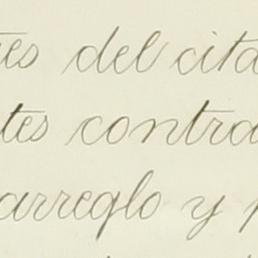 es del cita
tes contra
arreglo y p